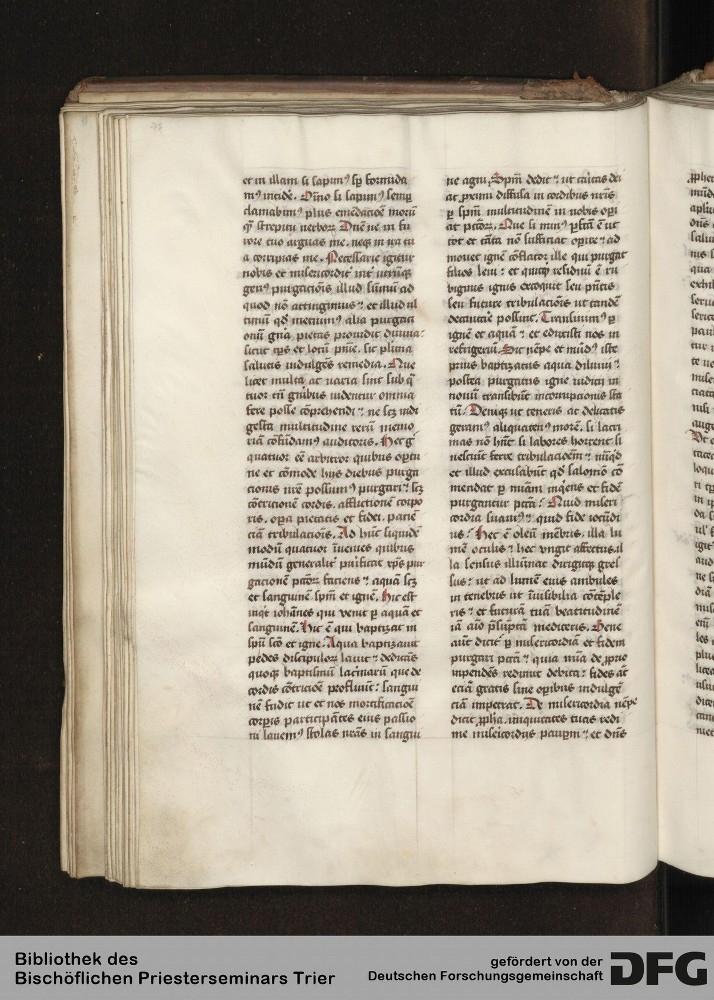 et in illam si sapim⁹ sp̱ formida
m⁹ incidē. Oīno si sapim⁹ semp̱
clamabim⁹ plus emēdacōe morū
q̄ strepitu verbor̄. Dn̄e ne in fu
rore tuo arguas me. neq̄ in ira tu
a corripias me. Necessarie igitur
nobis et misericordit̄
gen⁹ purgacōis illud
quod nō attingimus et illud ul
timū qd̄ metuim⁹ alia purgaci
onū gn̄a pietas prouidit diuina
sicut tp̄s et locū pn̄ie. sic plura
salutis indulgēs remedia. Que
licet multa ac varia sint sub q̄
tuor tn̄ gn̄ibus videntur omnia
fere posse cōprehendi ne scꝫ indi
gesta multitudine rerū memo
riā cōfūdam⁹ auditoris. Hec g̊
quatuor eē arbitror quibus oportu
ne et cōmode hijs diebus purga
cionis nr̄e possum⁹ purgari scꝫ
cōtricionē cordis. afflictionē corpo
ris. opera pietatis et fidei. pacien
ciā tribulacōis. Ad hūc siquidē
modū quatuor inuenies quibus
mūdū generalit̄ purificat xp̄s pur
gacionē pctor̄ faciens aquā scꝫ
et sanguinē sp̄m et ignē. Hic est
inqt iohānes qui venit p̱ aquā et
sanguinē. Hic ē qui baptizat in
sp̄u sc̄o et igne. Aqua baptizauit
pedes discipulor̄ lauit dedicās
quoqꝫ baptismū lacrimarū que de
cordis cōtricōe profluūt: sangui
nē fudit ut et nos mortificacōe
corporis participātes eius passio
ni lauem⁹ stolas nr̄as in sangui
ne agni. Sp̄m dedit ut caritas dei
ac proximi diffusa in cordibus nr̄is
p̱ sp̄m multitudinē in nobis operi
at pctōr̄. Que si min⁹ p̱fcā ē ut
tot et tāta nō sufficiat operire ad
mouet ignē cōflator ille qui purgat
filios leui: et quicqd residuū ē ru
biginis ignis excoquit seu pn̄tis
seu future tribulacōis ut tandē
decantare possint. Transiuim⁹ p̱
ignē et aquā et eduxisti nos in
refrigeriū. Sic nēpe et mūd⁹ iste
prius baptizatus aqua diluuij
postea purgatus igne iudicij in
nouū transibit incorrupcionis sta
tū. Deniqꝫ ut teneris ac delicatis
geram⁹ aliquaten⁹ morē. si lacri
mas nō hn̄t si labores horrent. si
nesciūt ferre tribulacōem nūqd
et illud excusabūt qd̄ salomō cō
mendat p̱ mīam inqens et fidē
purgantur pctā: Quid miseri
cordia suaui⁹ quid fide iocūdi
us: Hec ē oleū mēbris. illa lu
mē oculis hec vngit affectus. il
la sensus illūinat dirigitqꝫ gres
sus: ut ad lumē eius ambules
in tenebris ut inuisibilia cōtēple
ris et futurā tuā beatitudinē
iā mediteris. Bene
aūt dicit̄ p̱ misericordiā et fidem
purgari pctā quia mīa de proprio
inpendēs redimit debita: fides aūt
eciā gratis sine operibus indulgē
ciā impetrat. De misericordia nēpe
dicit propha. iniquitates tuas redi
me misericordijs paup̱um et dn̄s
Bibliothek des
Bischöflichen Priesterseminars Trier
gefördert von der
Deutschen Forschungsgemeinschaft
DFG